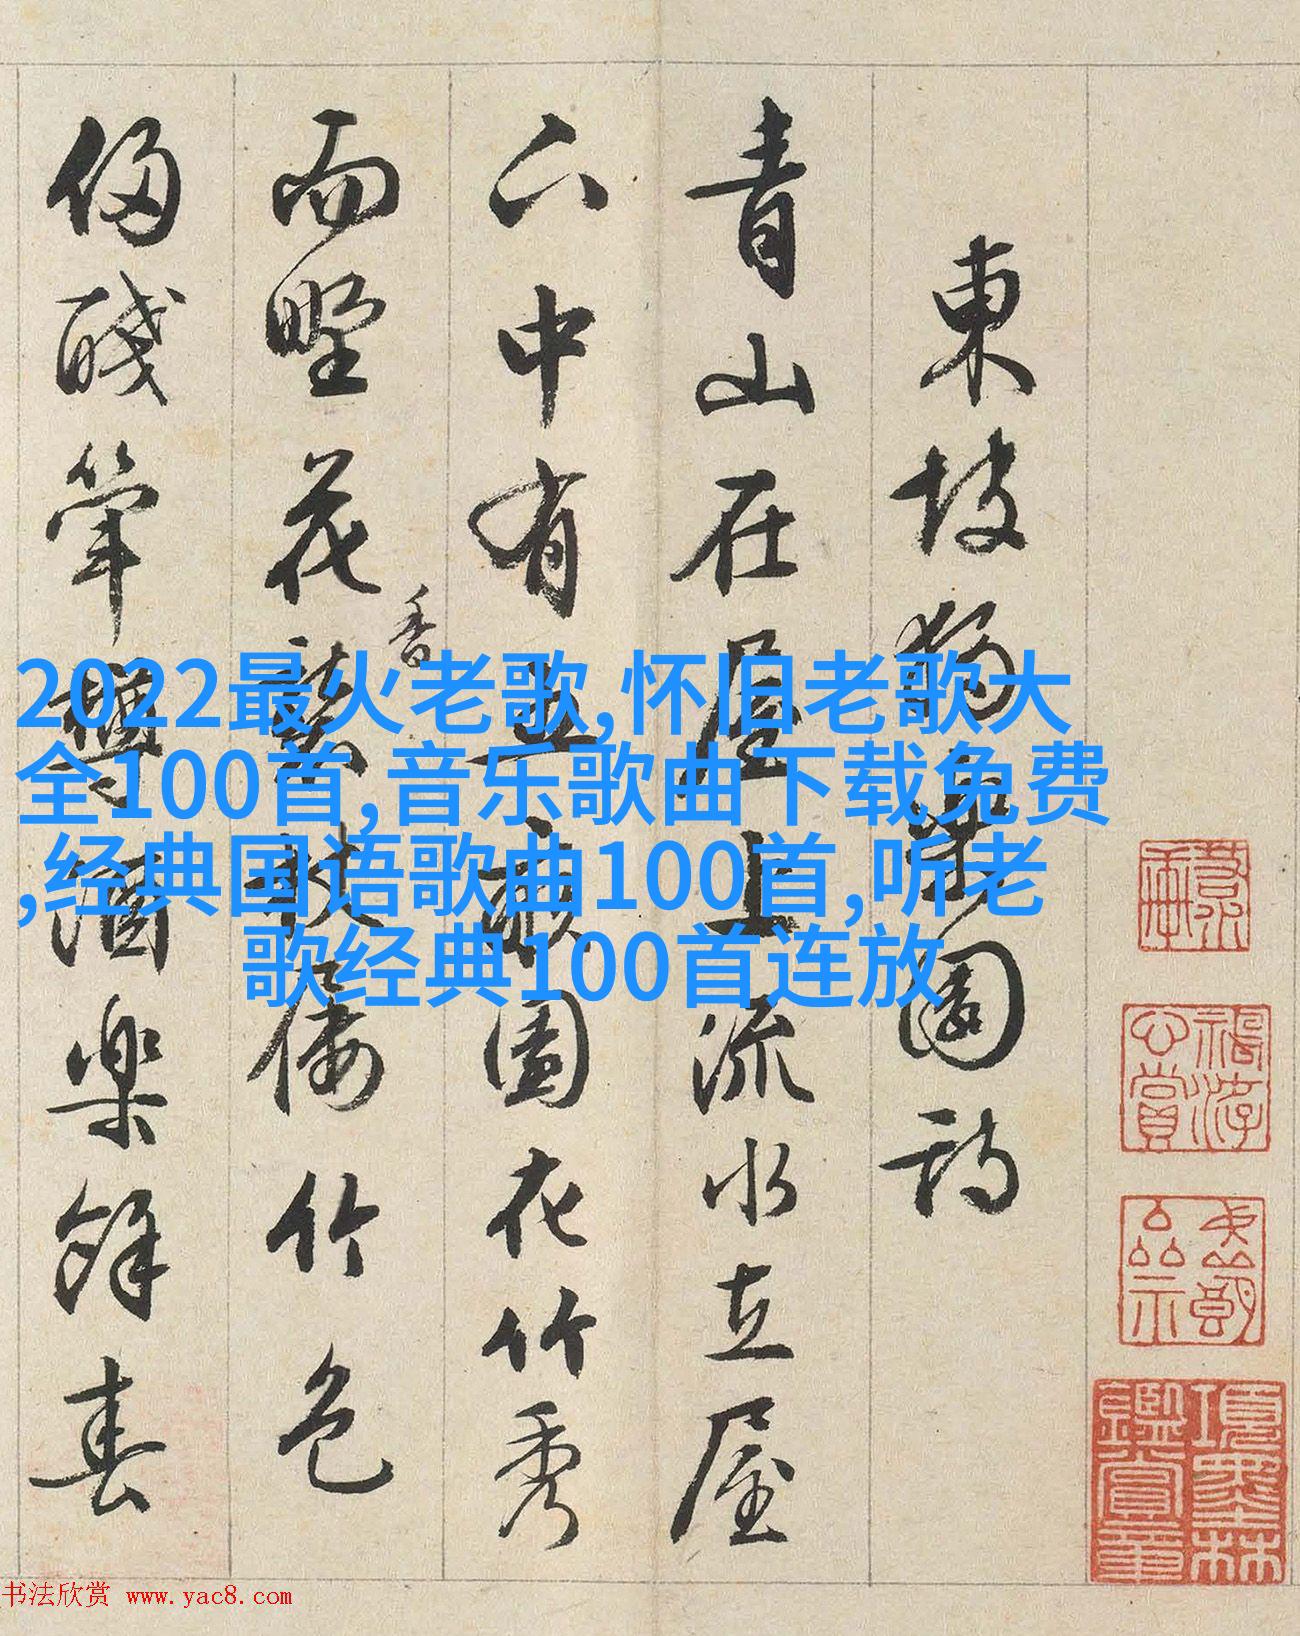 東坡獨樂園詩
青山在屋上流水在屋
下中有五畝園花竹秀
而野花香襲杖屨竹色
侵醆斝樽酒樂餘春
2022最火老歌,怀旧老歌大
全100首,音乐歌曲下载免费
,经典国语歌曲100首,听老
歌经典100首连放
項墨林
鑑賞章
书法欣赏 www.yac8.com